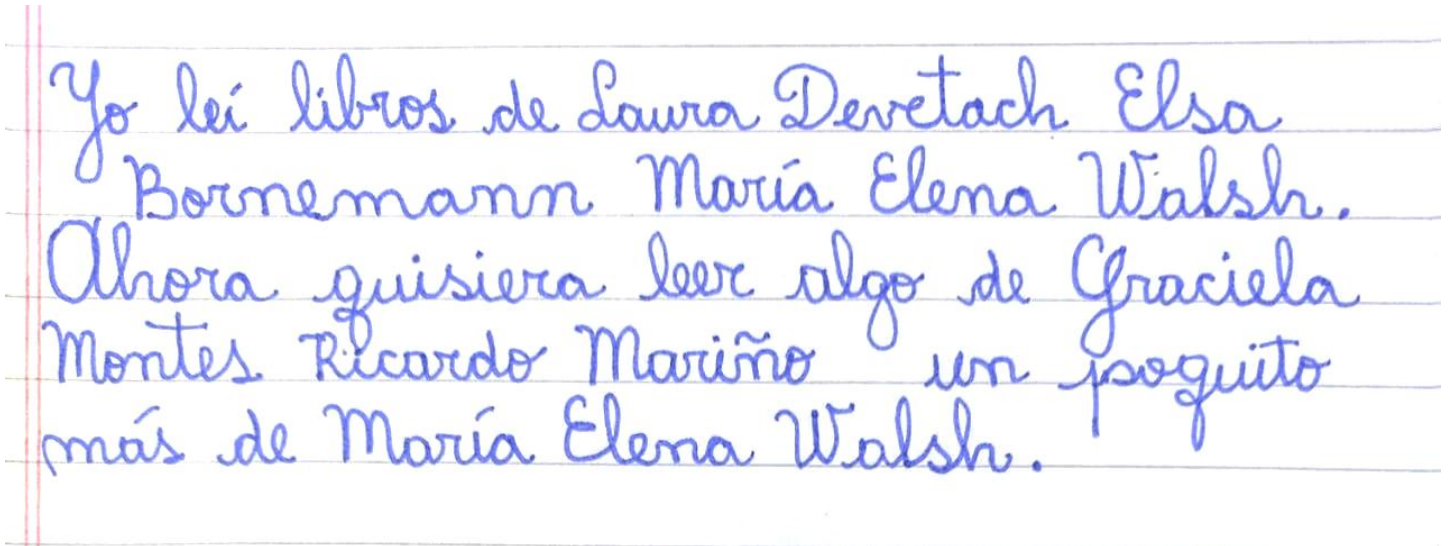 Yo leí libros de Laura Devetach Elsa
Bornemann María Elena Walsh.
Ahora quisiera leer algo de Graciela
Montes Ricardo Mariño un poquito
más de María Elena Walsh.